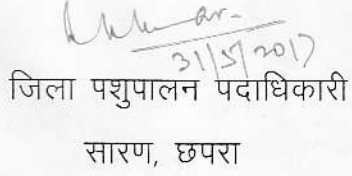 31/5/2017
जिला पशुपालन पदाधिकारी
सारण, छपरा